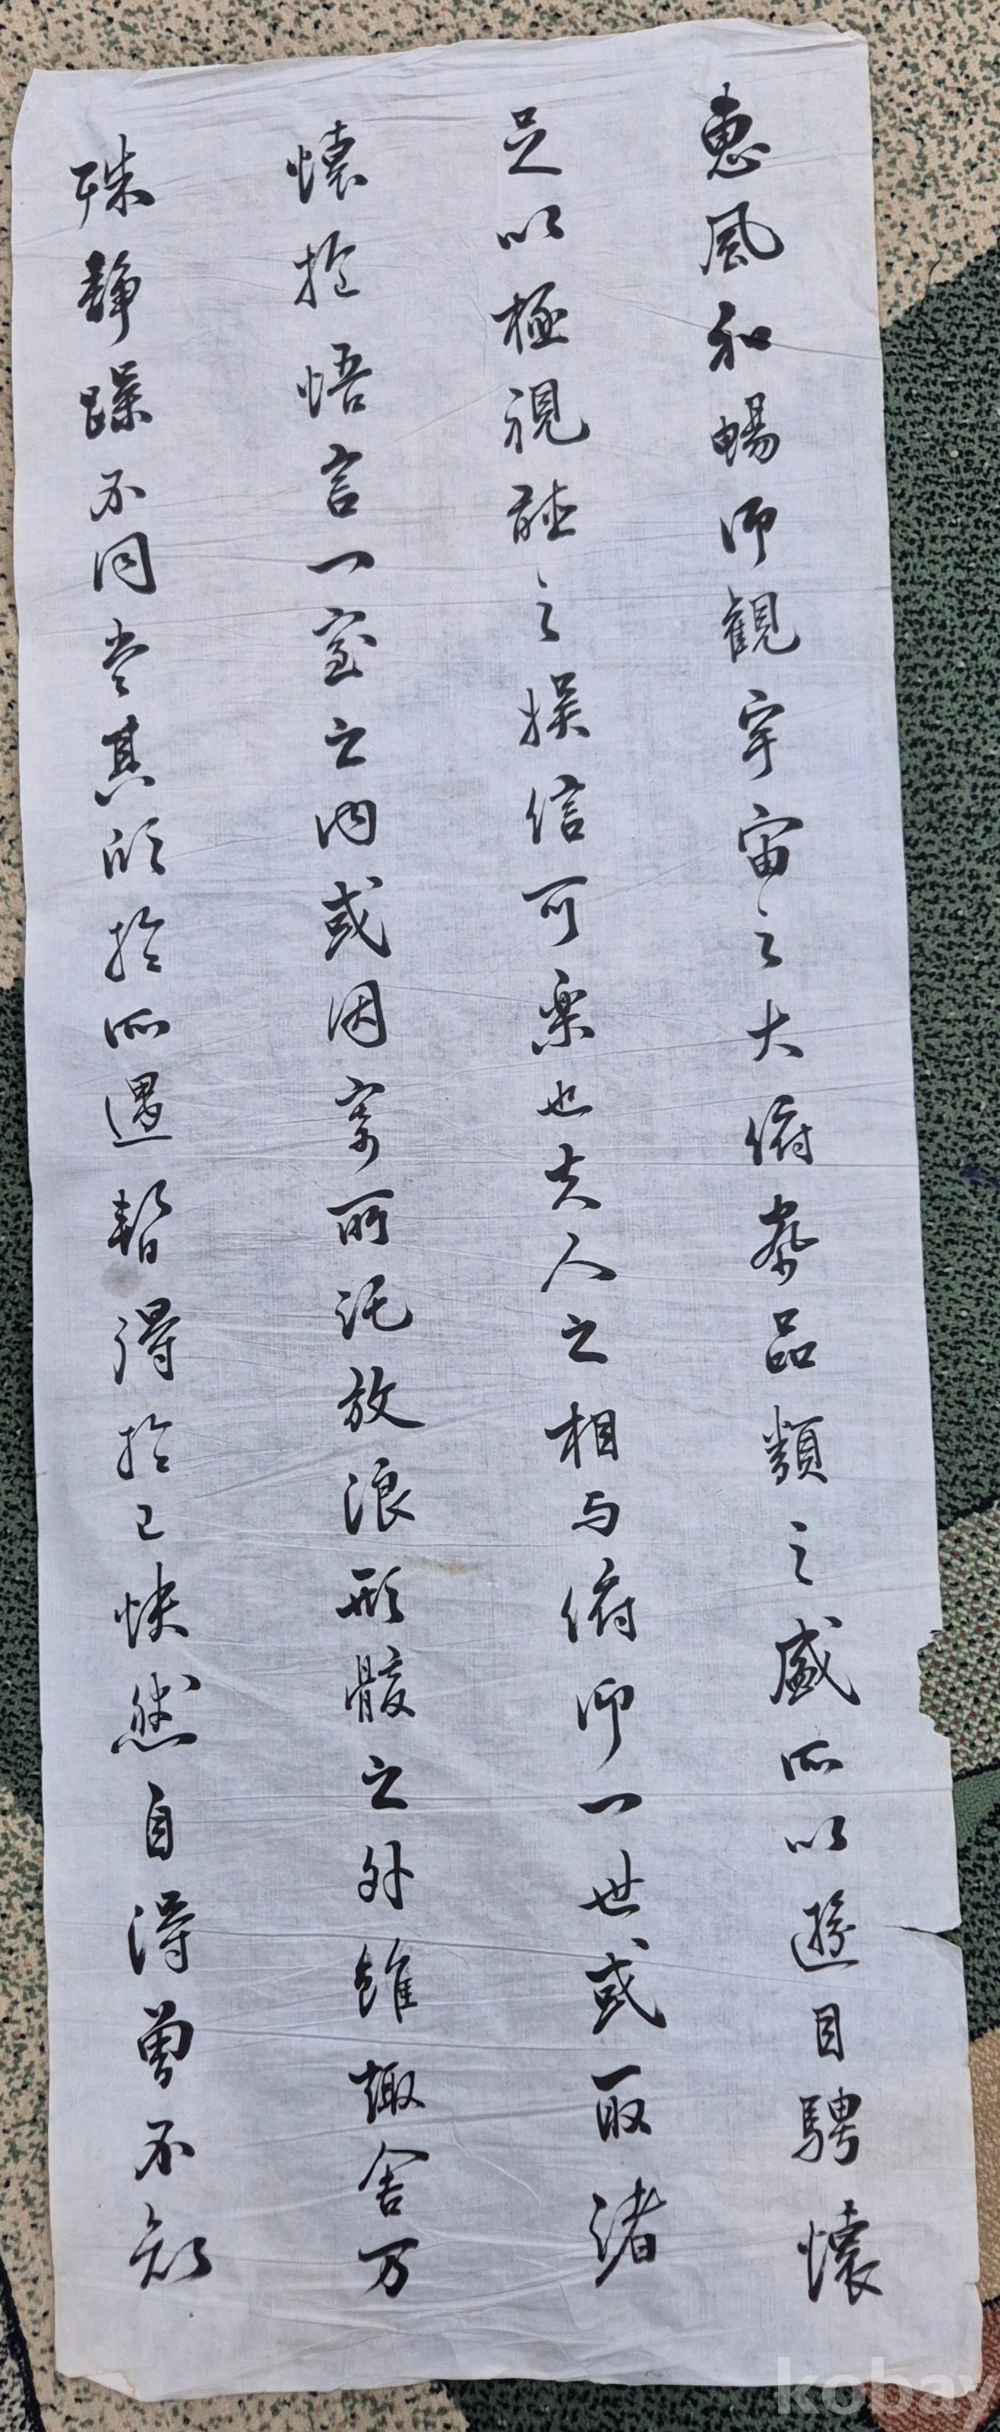 惠風和暢仰觀宇宙之大俯察品類之盛所以遊目騁懷
足以極視聽之娛信可樂也夫人之相与俯仰一世或取諸
懷抱悟言一室之內或因寄所託放浪形骸之外雖趣舍万
殊靜躁不同當其欣於所遇暫得於己怏然自得曾不知
kobay